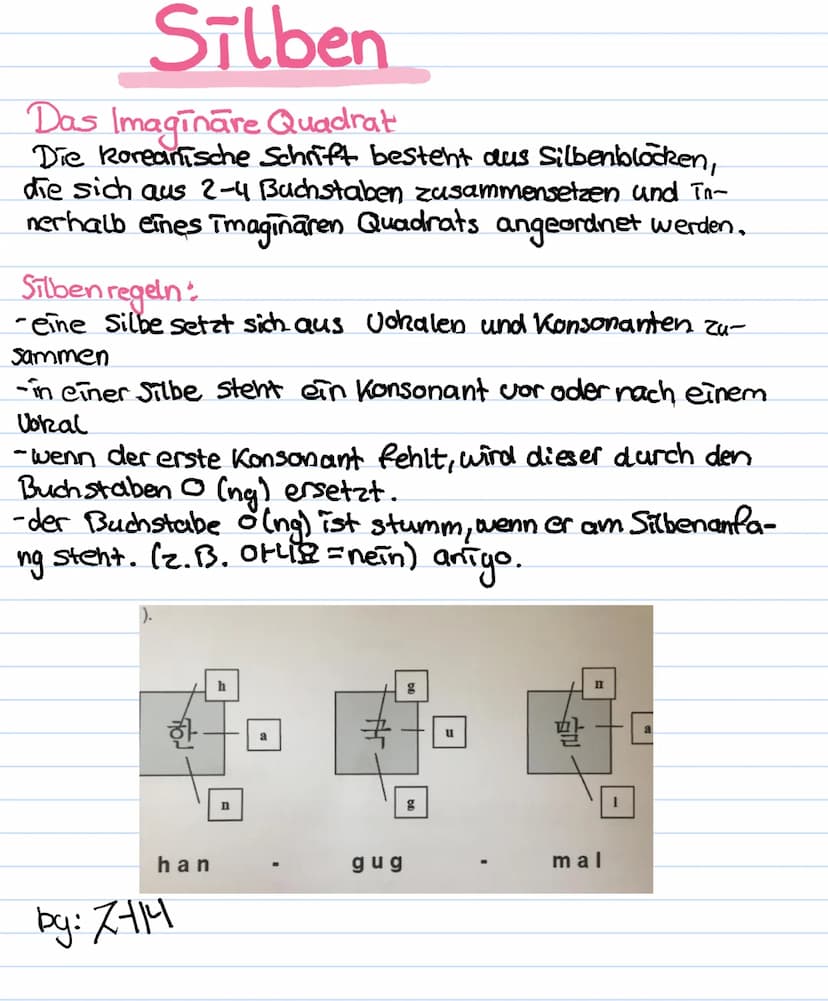 Silben
Das Imaginäre Quadrat
Die koreanische Schrift besteht aus Silbenblöcken,
die sich aus 2-4 Buchstaben zusammensetzen und in-
nerhalb eines imaginären Quadrats angeordnet werden.
Silbenregeln:
-eine Silbe setzt sich aus Vokalen und Konsonanten zu-
sammen
-in einer Silbe steht ein Konsonant vor oder nach einem
Vokal
-wenn der erste Konsonant fehlt, wird dieser durch den
Buchstaben ㅇ (ng) ersetzt.
-der Buchstabe ㅇ(ng) ist stumm, wenn er am Silbenanfa-
ng steht. (z.B. 아니요=nein) anigo.
).
h g n
한 a 국 u 말 a
n g l
han - gug - mal
by: